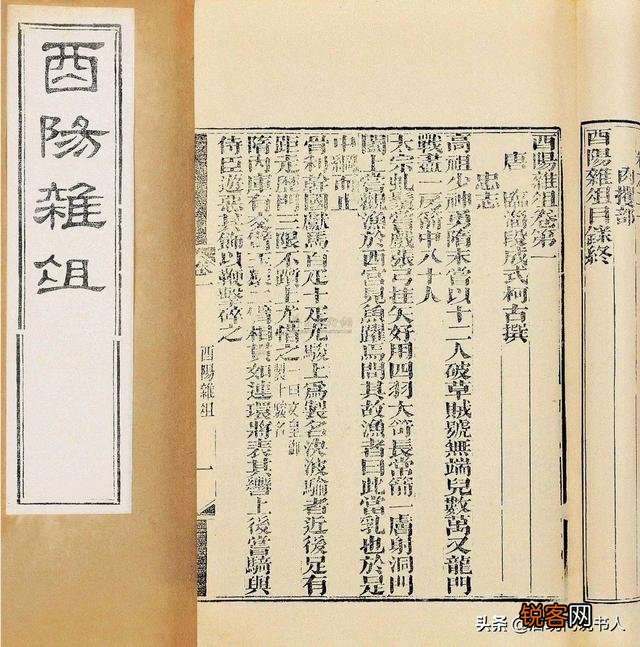 酉陽雜俎
肉攫部
酉陽雜俎目錄終
酉陽雜俎卷第一
唐 臨淄段成式柯古撰
忠志
高祖少神勇隋末嘗以十二人破草賊號無端兒數萬又龍門
戰盡一房箭中八十人
太宗虬鬚嘗戲張弓挂矢好用四羽大笴長常箭一膚射洞門
闔上嘗觀漁於西宮見魚躍焉問其故漁者曰此當乳也於是
中網而止
骨利幹國獻馬百疋十疋尤駿上為製名決波騟者近後足有
距走歷門三限不躓上尤惜之一曰文皇御製十驥名
隋內庫有交臂玉猿二臂相貫如連環將表其轡上後嘗騎與
侍臣遊惡其飾以鞭擊碎之
卷一
酉陽雜俎
一
头条
锐客网